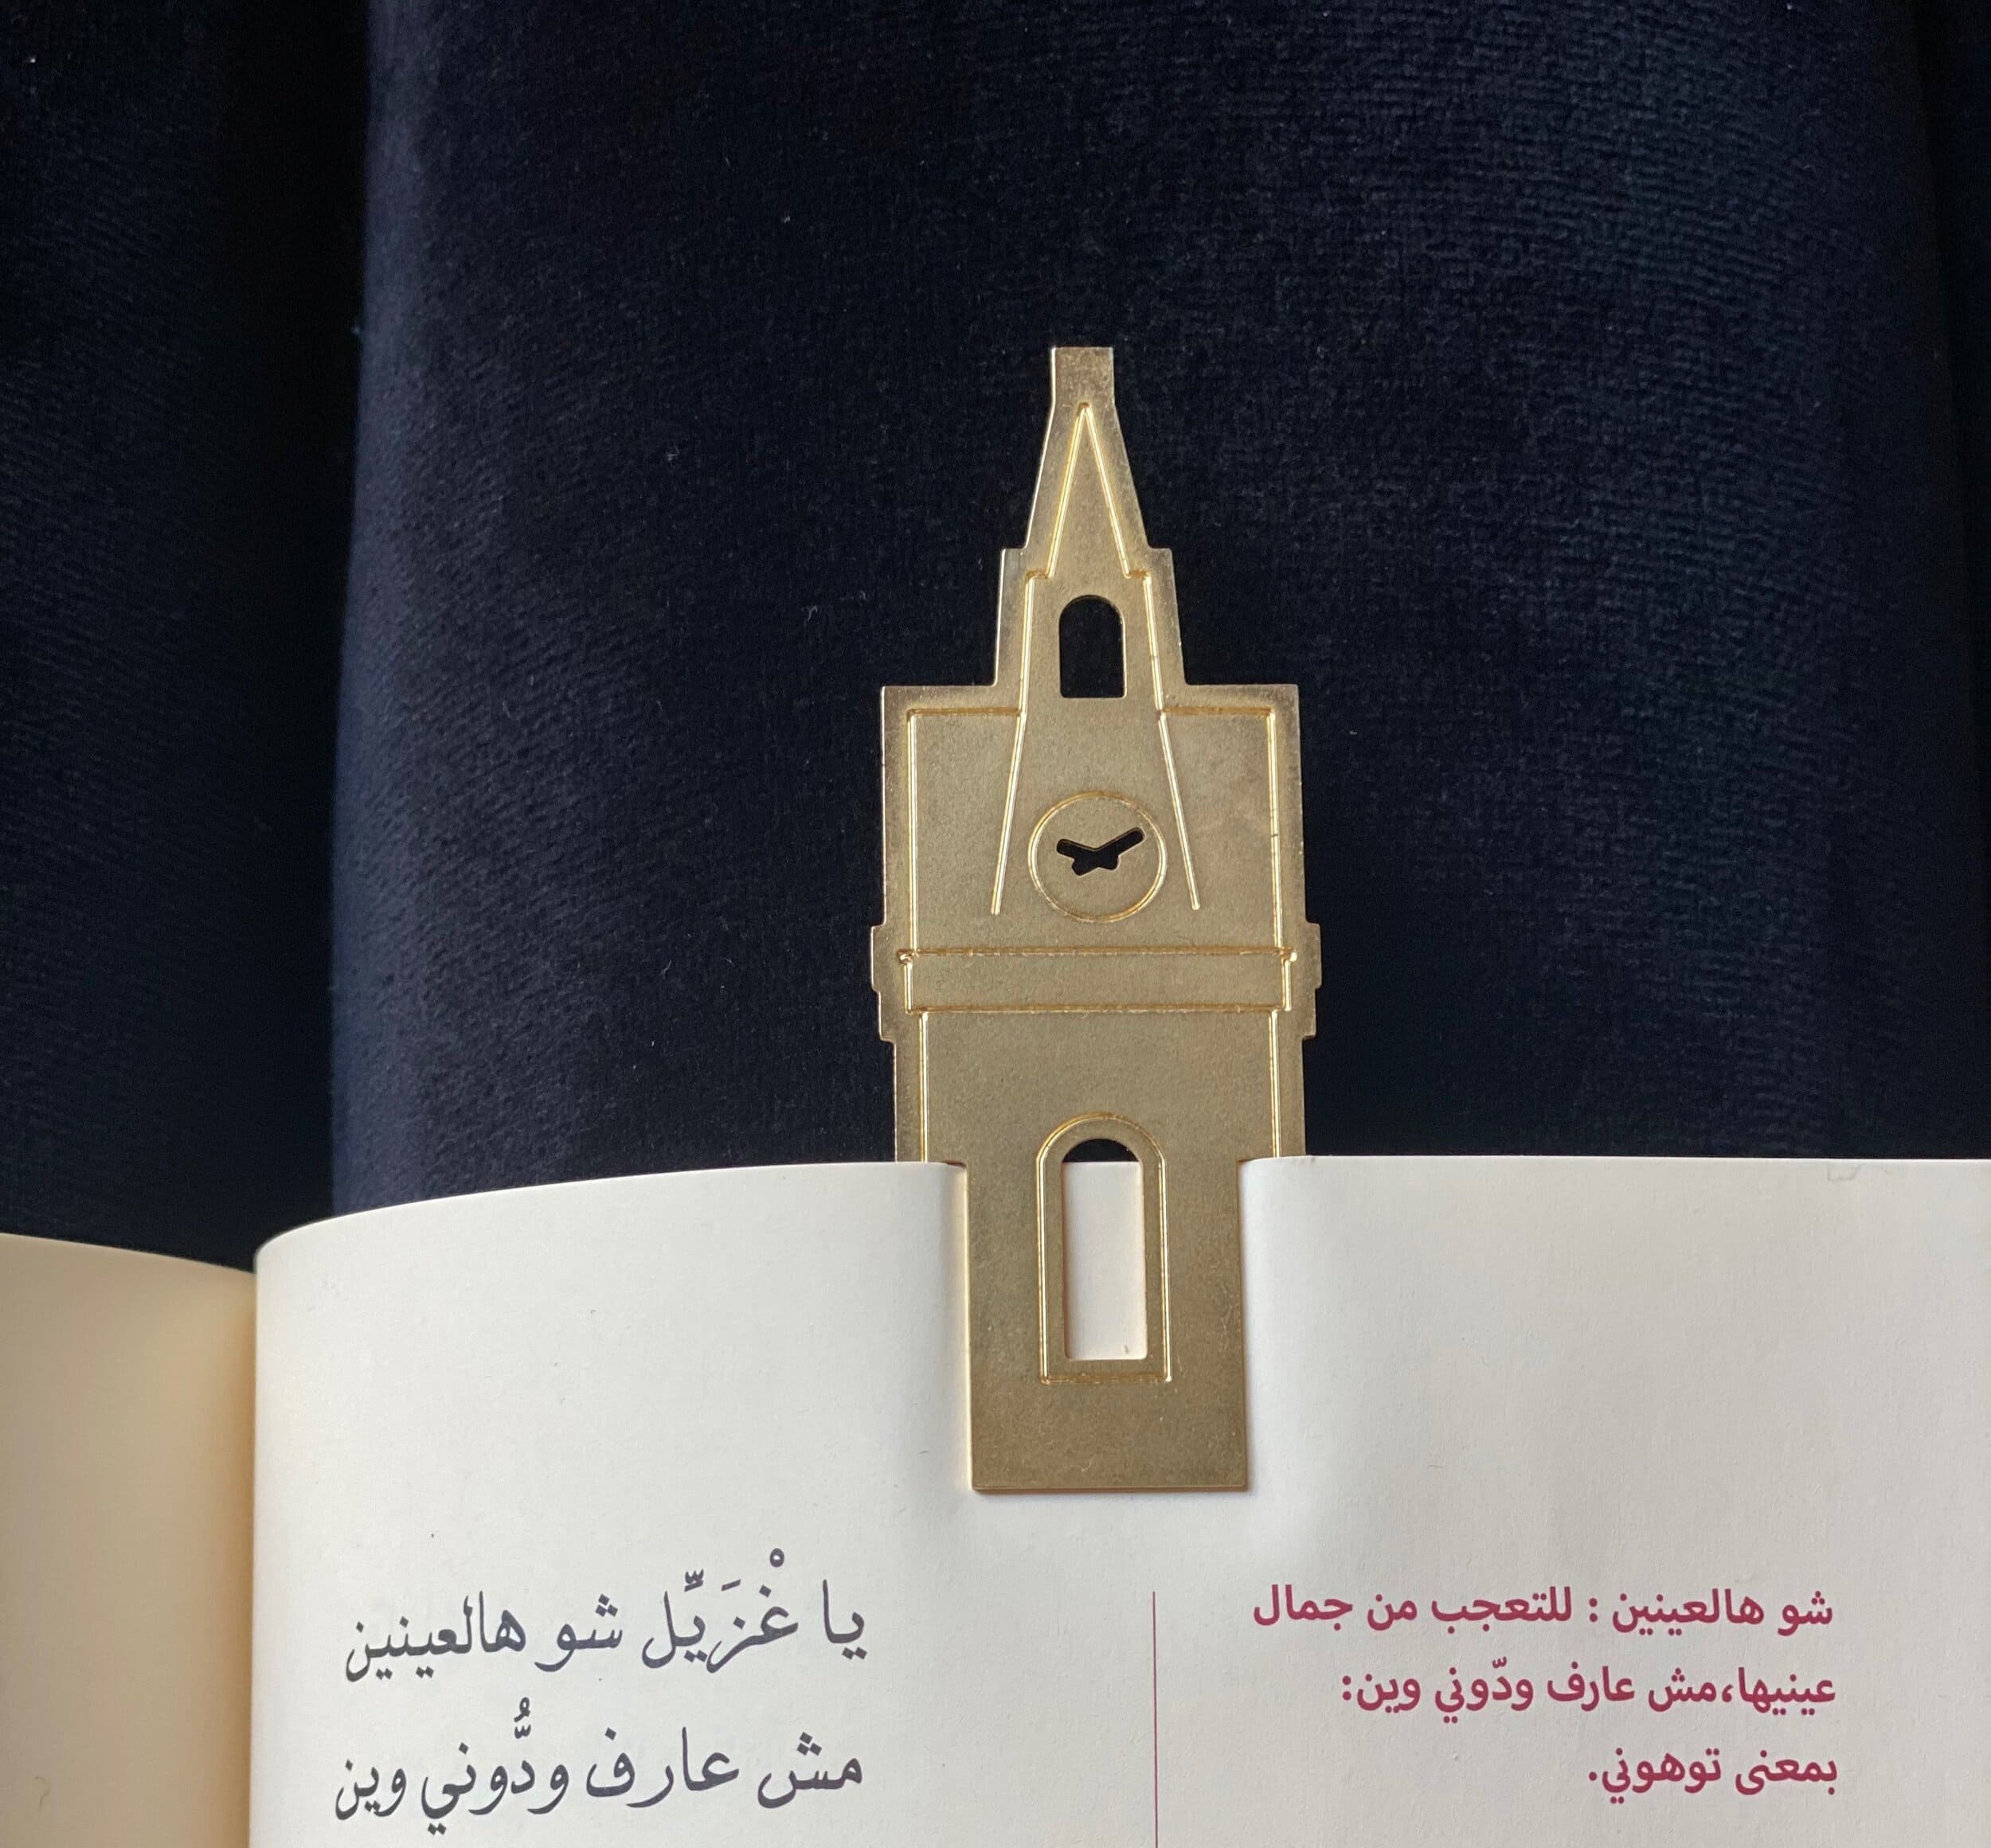 شو هالعينين : للتعجب من جمال
عينيها،مش عارف ودّوني وين:
بمعنى توهوني.
يا غْزَيِّل شو هالعينين
مش عارف ودُّوني وين